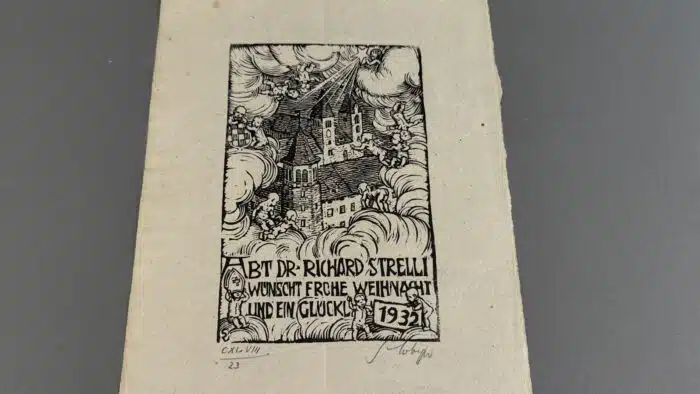 ABT DR. RICHARD STRELLI
WÜNSCHT FROHE WEIHNACHT
UND EIN GLÜCKL.
1932
CXLVIII
23